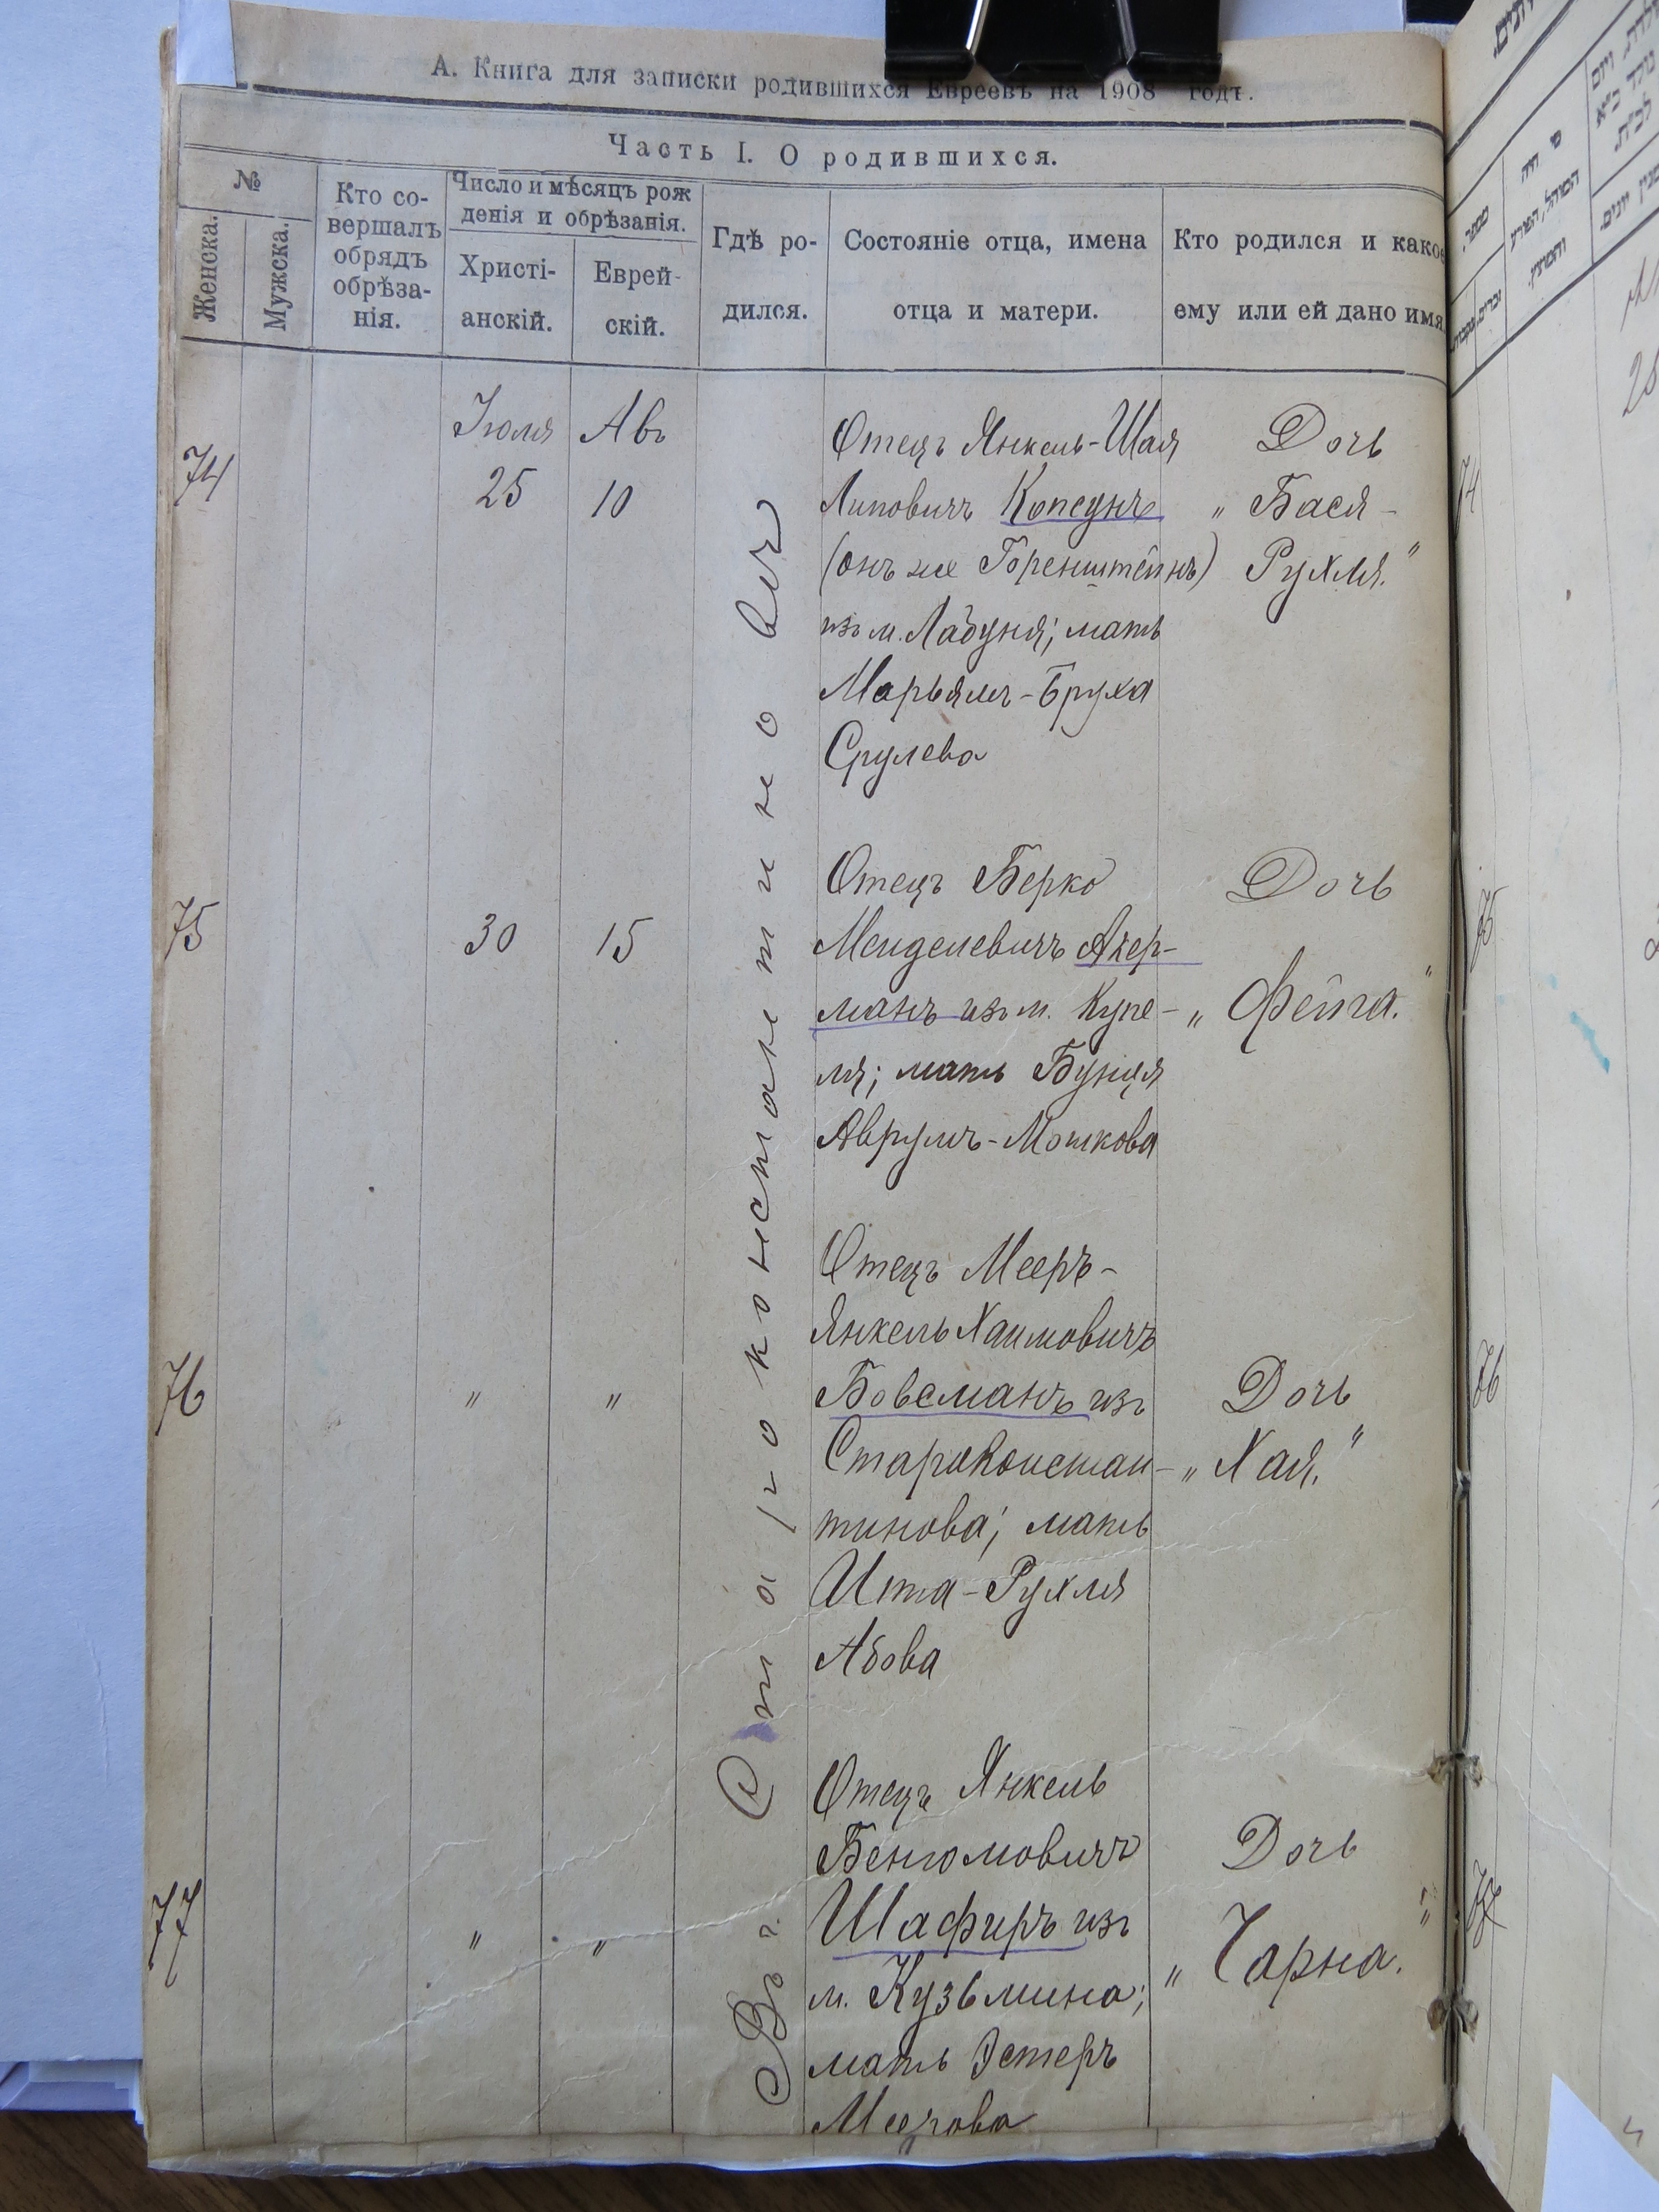 А. Книга для записки родившихся Евреевъ на 1908 годъ.
Часть I. О родившихся.
№
Женска.
Мужска.
Кто со-
вершалъ
обрядъ
обрѣза-
нія.
Число и мѣсяцъ рож
денія и обрѣзанія.
Христі-
анскій.
Еврей-
скій.
Гдѣ ро-
дился.
Состояніе отца, имена
отца и матери.
Кто родился и какое
ему или ей дано имя.
Въ г. Староконстантиновѣ
74
Іюля
25
Авъ
10
Отецъ Янкель-Шая
Липовичъ Копсунъ
(онъ же Горенштейнъ)
изъ м. Лабуня; мать
Марьямъ-Бруха
Срулева
Дочь
„Бася-
Рухля."
74
75
30
15
Отецъ Берко
Менделевичъ Акер-
манъ изъ м. Купе-
ля; мать Бунця
Аврумъ-Мошкова
Дочь
„Фейга."
75
76
"
"
Отецъ Мееръ-
Янкель Хаимовичъ
Бовсманъ изъ
Староконстан-
тинова; мать
Ита-Рухля
Абова
Дочь
„Хая."
76
77
"
"
Отецъ Янкель
Бенюмовичъ
Шафиръ изъ
м. Кузьмина;
мать Эстеръ
Меерова
Дочь
„Чарна."
77